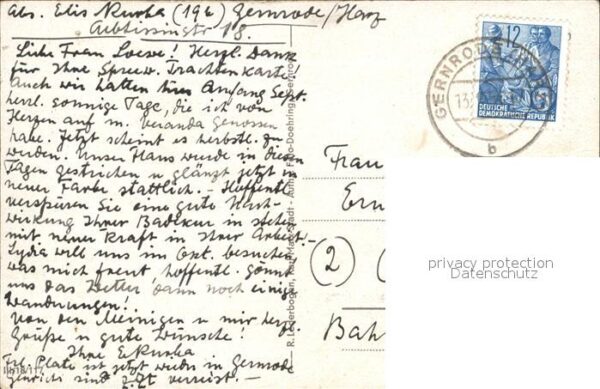 Abs. Elis Kurka (196) Gernrode/Harz
Äbtissinstr 18.
Liebe Frau Loewe! Herzl. Dank
für Ihre Spreew. Trachtenkarte!
Auch wir hatten hier Anfang Sept.
herrl. sonnige Tage, die ich von
Herzen auf m. Veranda genossen
habe. Jetzt scheint es herbstl. zu
werden. Unser Haus wurde in diesen
Tagen gestrichen u glänzt jetzt in
neuer Farbe stattlich. - Hoffentl.
verspüren Sie eine gute Nach-
wirkung Ihrer Badekur u stehen
mit neuer Kraft in Ihrer Arbeit.
Lydia will uns im Okt. besuchen
was mich freut, hoffentl. gönnt
uns das Wetter dann noch einige
Wanderungen!
Von den Meinigen u mir herzl.
Grüße u gute Wünsche!
Ihre EKurka
Frl. Plate ist jetzt wieder in Gernrode
sind z. Zt verreist. -
R. Lederbogen, Halberstadt
Frau
Ern
(2)
Bah
GERNRODE (HARZ)
13
b
12
DEUTSCHE
DEMOKRATISCHE REPUBLIK
privacy protection
Datenschutz